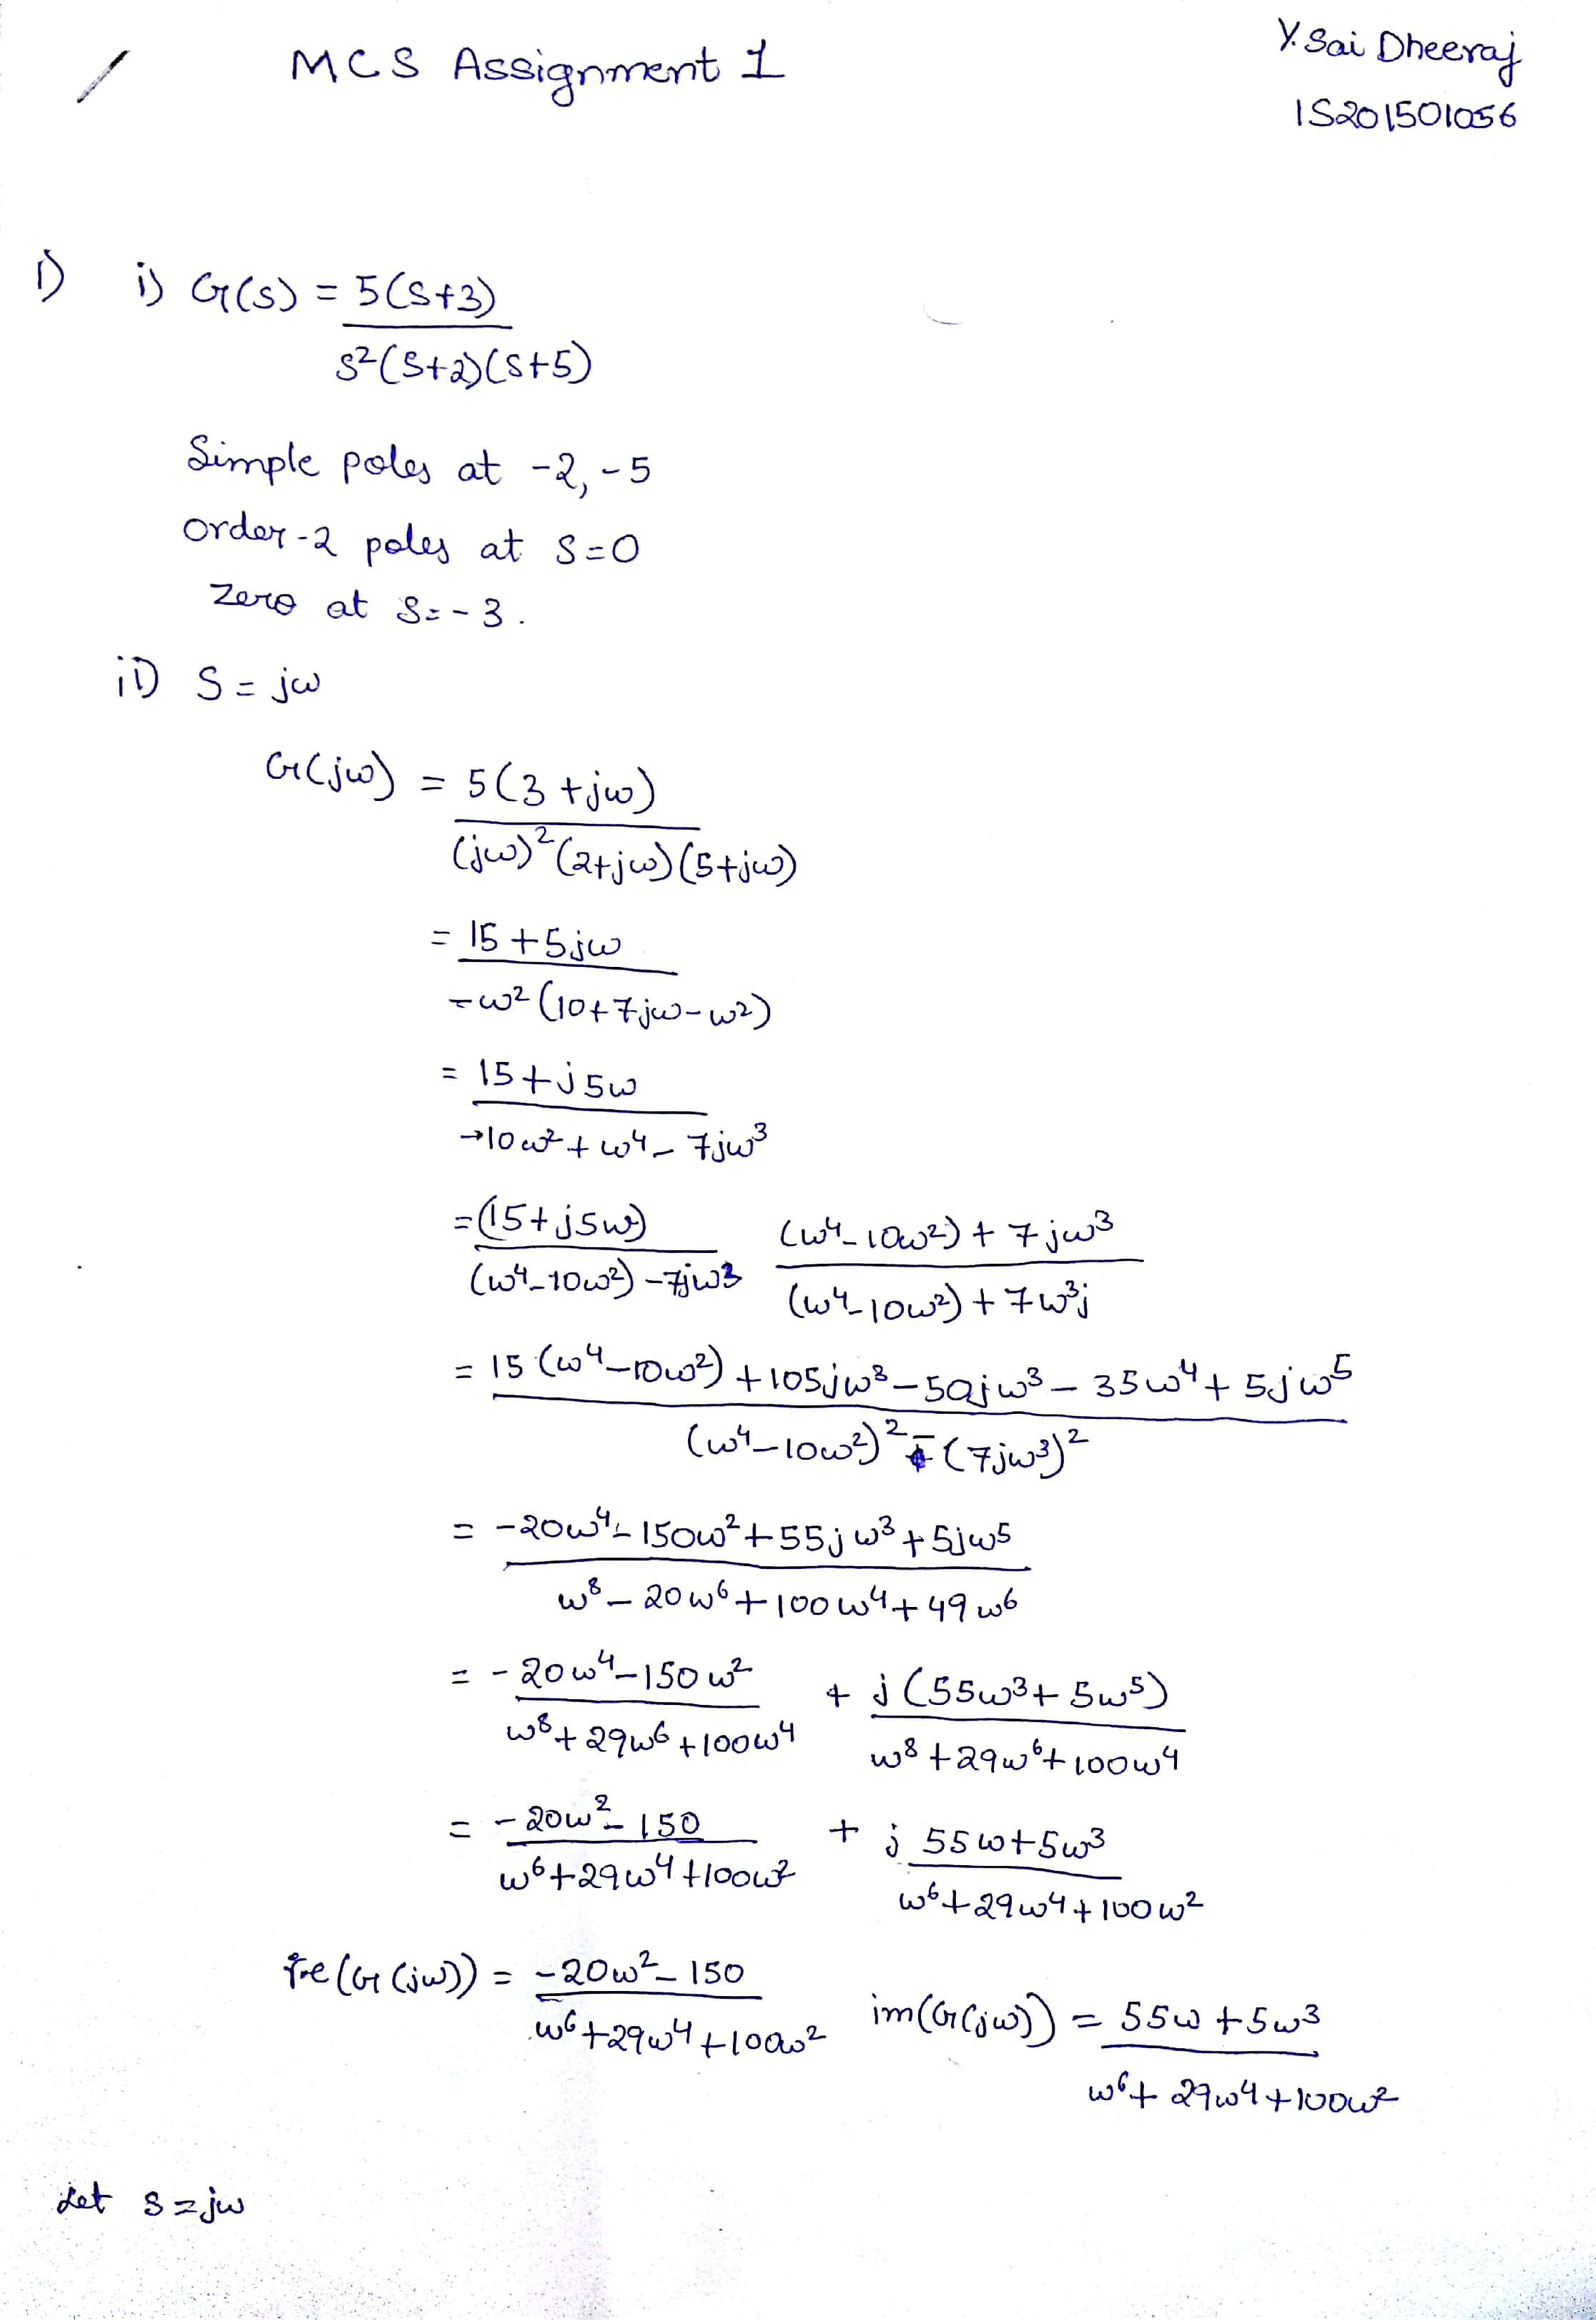 MCS Assignment 1
Y. Sai Dheeraj
IS201501056
1) i) G(s) = 5(s+3)
s²(s+2)(s+5)
Simple poles at -2, -5
order-2 poles at s=0
zero at s=-3.
ii) s = jω
G(jω) = 5(3+jω)
(jω)²(2+jω)(5+jω)
= 15+5jω
-ω²(10+7jω-ω²)
= 15+j5ω
-10ω²+ω⁴-7jω³
= (15+j5ω) (ω⁴-10ω²)+7jω³
(ω⁴-10ω²)-7jω³ (ω⁴-10ω²)+7ω³j
= 15(ω⁴-10ω²)+105jω³-50jω³-35ω⁴+5jω⁵
(ω⁴-10ω²)²-(7jω³)²
= -20ω⁴-150ω²+55jω³+5jω⁵
ω⁸-20ω⁶+100ω⁴+49ω⁶
= -20ω⁴-150ω² + j(55ω³+5ω⁵)
ω⁸+29ω⁶+100ω⁴ ω⁸+29ω⁶+100ω⁴
= -20ω²-150 + j 55ω+5ω³
ω⁶+29ω⁴+100ω² ω⁶+29ω⁴+100ω²
re(G(jω)) = -20ω²-150 im(G(jω)) = 55ω+5ω³
ω⁶+29ω⁴+100ω² ω⁶+29ω⁴+100ω²
Let s=jω